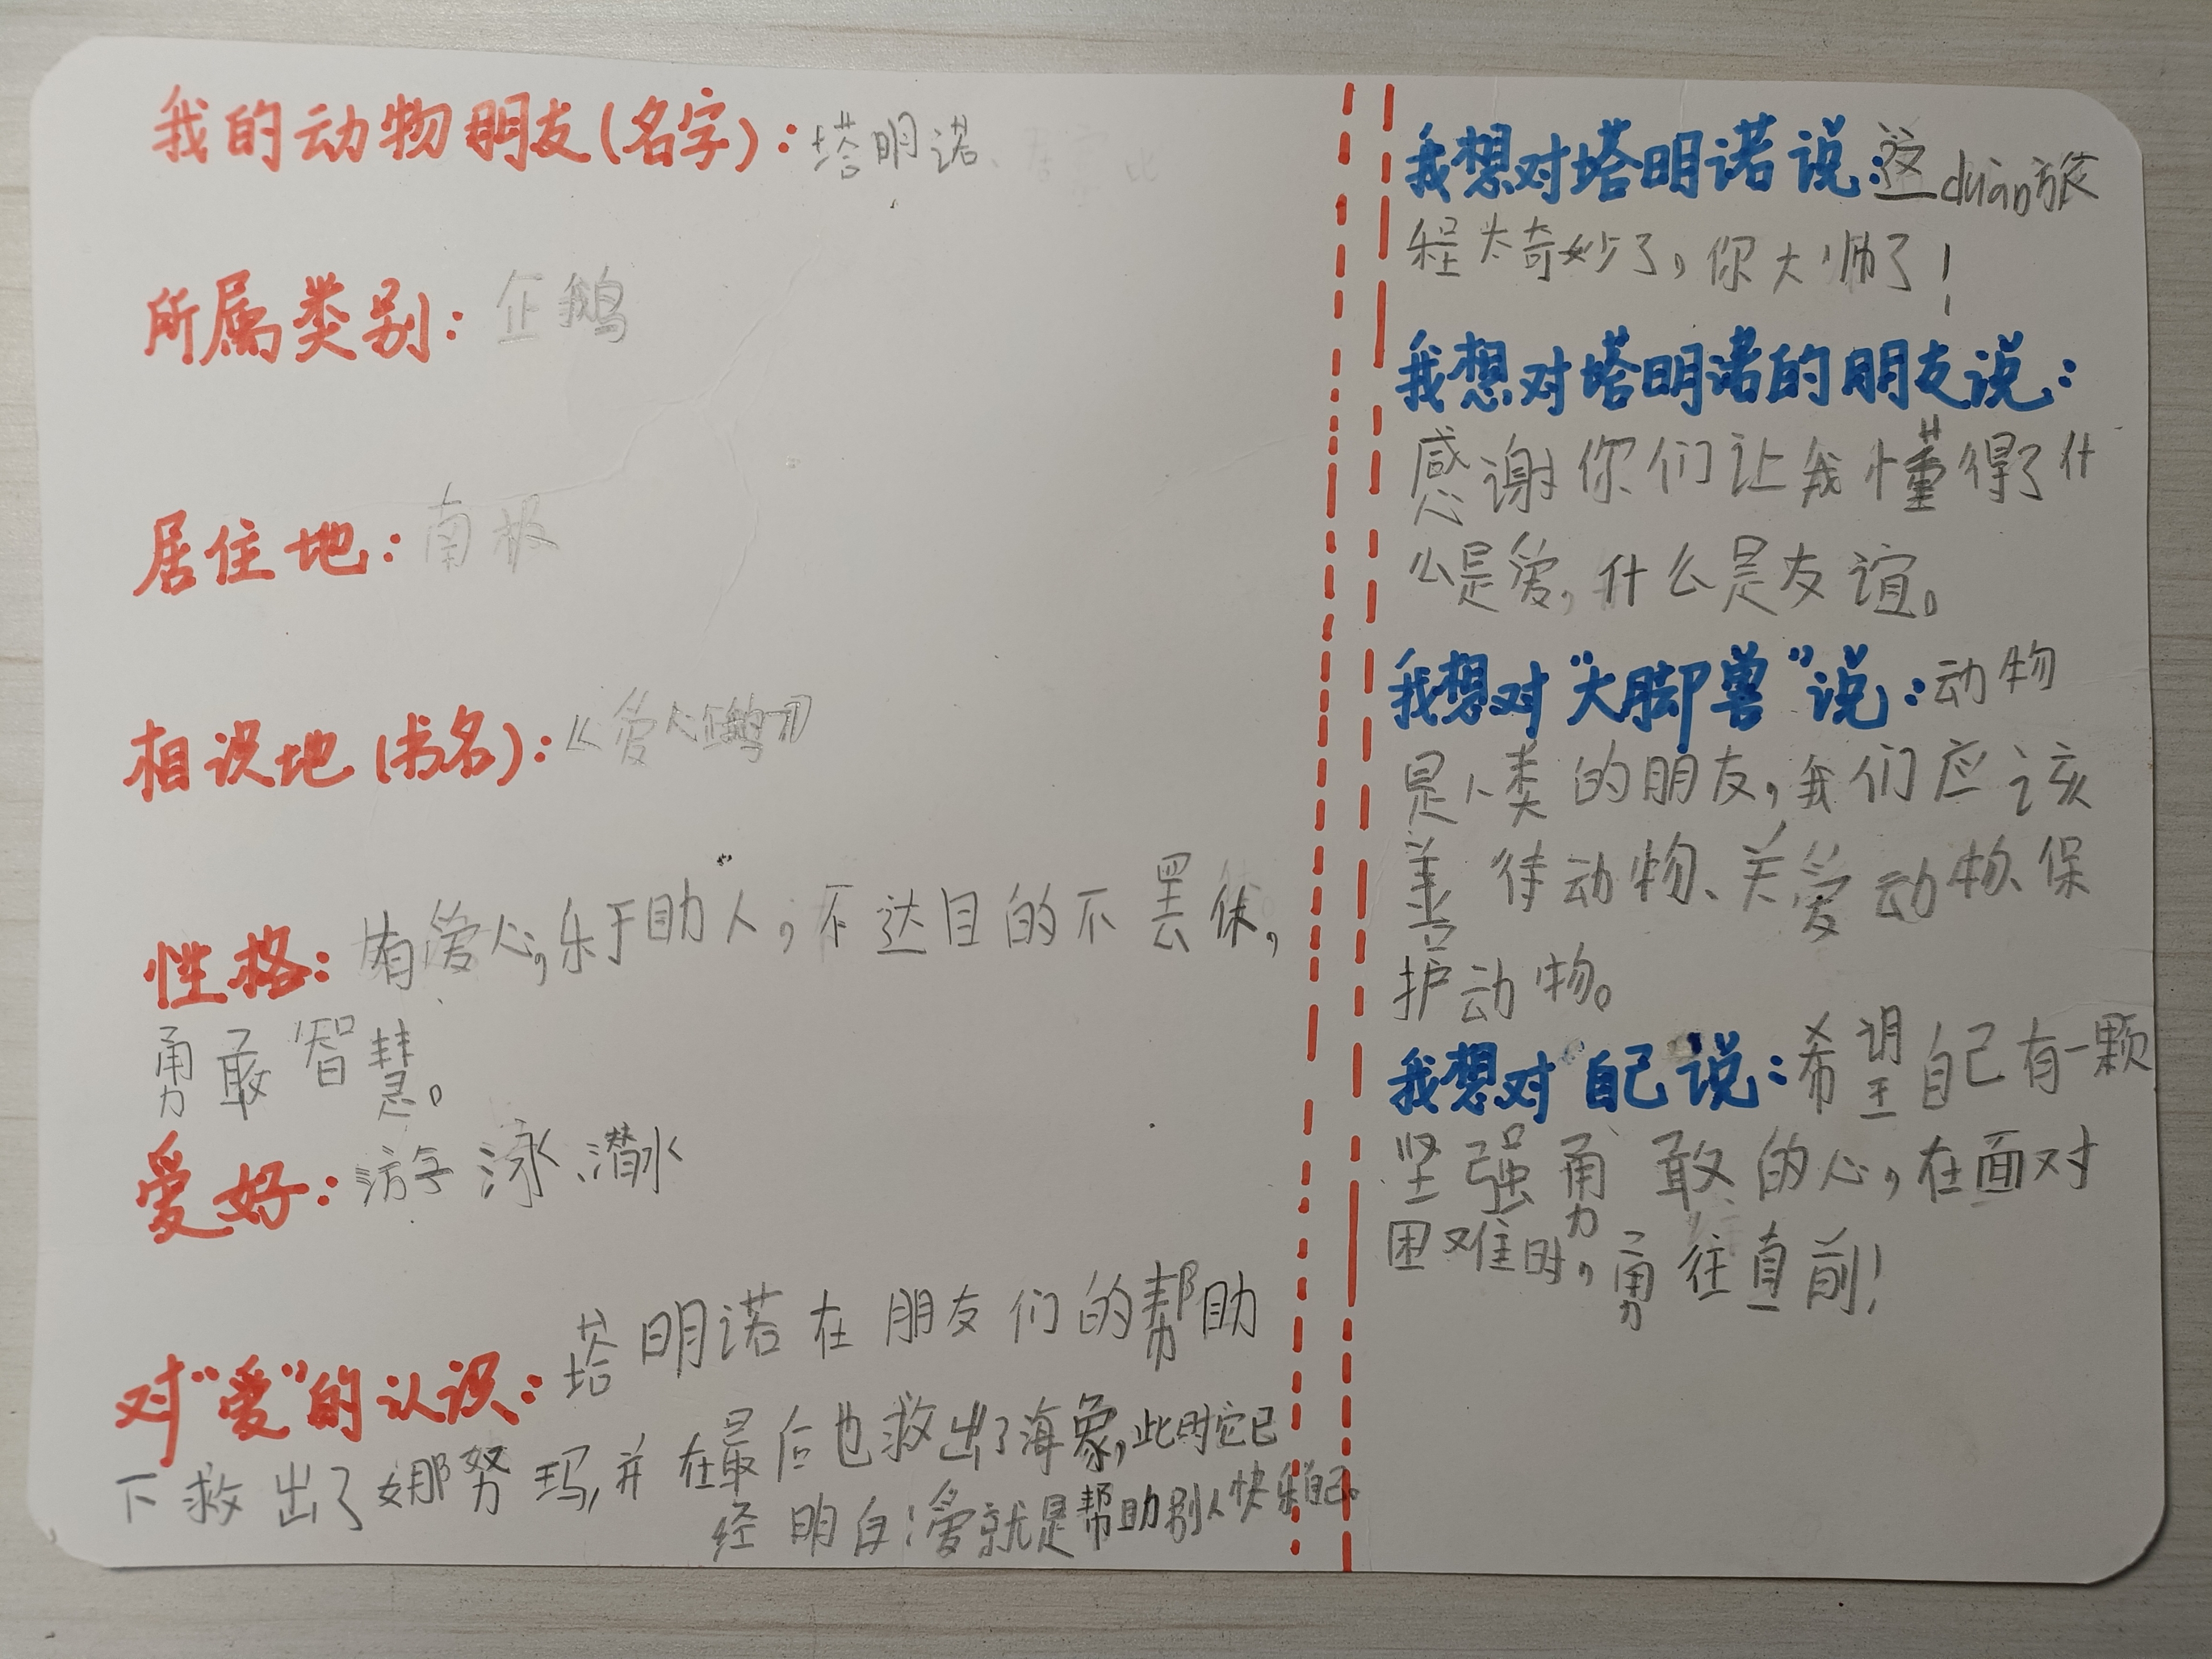 我的动物朋友(名字):塔明诺
所属类别:企鹅
居住地:南极
相识地(书名):《爱人企鹅》
性格:有爱心,乐于助人,不达目的不罢休,
勇敢智慧。
爱好:游泳、潜水
对“爱”的认识:塔明诺在朋友们的帮助
下救出了娜努玛,并在最后也救出了海象,此时它已
经明白:爱就是帮助别人快乐自己。
我想对塔明诺说:这duan旅
程太奇妙了,你大帅了!
我想对塔明诺的朋友说:
感谢你们让我懂得了什
么是爱,什么是友谊。
我想对“大脚兽”说:动物
是人类的朋友,我们应该
善待动物、关爱动物、保
护动物。
我想对自己说:希望自己有一颗
坚强勇敢的心,在面对
困难时,勇往直前!